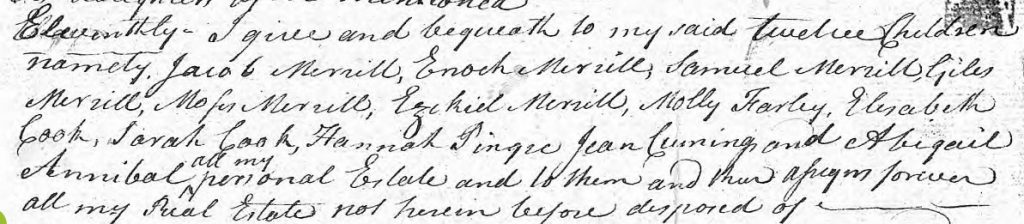 mentioned
Eleventhly - I give and bequeath to my said twelve Children
namely, Jacob Merrill, Enoch Merrill, Samuel Merrill, Giles
Merrill, Moses Merrill, Ezekiel Merrill, Molly Farley, Elisabeth
Cook, Sarah Cook, Hannah Pingre Jean Cuming and Abigail
all my
Annibal personal Estate and to them and their assigns forever
all my Real Estate not herein before disposed of